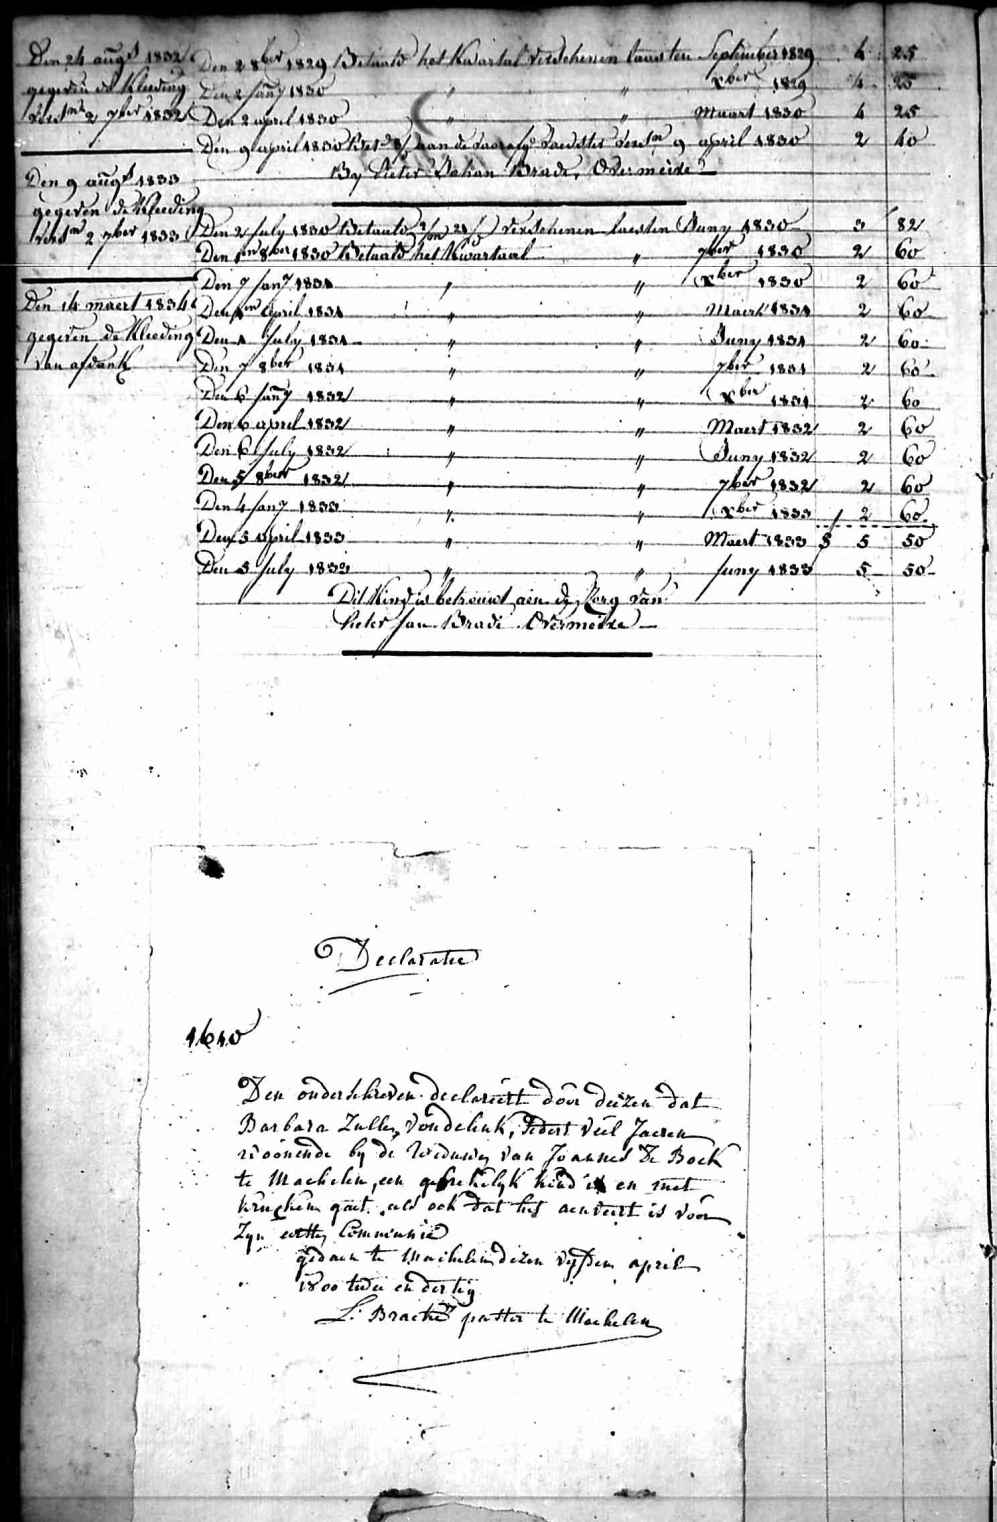 Den 24 augs 1832
gegeven de Kleeding
verstm 2 7ber 1832
Den 9 augs 1833
gegeven de Kleeding
verstm 2 7ber 1833
Den 14 maert 1834
gegeven de Kleeding
van afdank
Den 2 8ber 1829 Betaald het Kwartal verschenen laasten September 1829 4 25
Den 2 Jany 1830 " " Xber 1829 4 25
Den 2 april 1830 " " Maart 1830 4 25
Den 9 april 1830 9 april 1830 2 40
By Pieter Johan Brade, Overmeire
Den 2 July 1830 Betaald verschenen laesten Juny 1830 3 82
Den 1 8ber 1830 Betaald het Kwartaal " 7ber 1830 2 60
Den 7 Jany 1831 " " Xber 1830 2 60
Den april 1831 " " Maert 1831 2 60
Den 1 July 1831 " " Juny 1831 2 60
Den 7 8ber 1831 " " 7ber 1831 2 60
Den 6 Jany 1832 " " Xber 1831 2 60
Den 6 april 1832 " " Maert 1832 2 60
Den 6 July 1832 " " Juny 1832 2 60
Den 5 8ber 1832 " " 7ber 1832 2 60
Den 4 Jany 1833 " " Xber 1833 2 60
Den 5 april 1833 " " Maert 1833 5 50
Den 5 July 1833 " " Juny 1833 5 50
Dit Kind is betrouwt aen de Zorg van
Pieter Jan Brade Overmeire
Declaratie
1610
Den onderschreven declareert door deezen dat
Barbara Zulle, vondelink, sedert veel Jaeren
woonende by de Weduwe van Joannes De Bock
te Machelen, een gebrekelyk kind is en met
krucken gaet, als ook dat het aenveert is voor
Zyn eerste Communie
gedaen te Machelen dezen vyfden april
1800 twee en dertig
L. Bracke pastor te Machelen